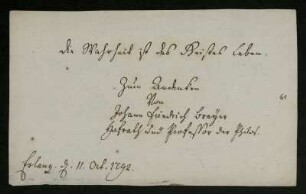 Die Wahrheit ist des Geistes Leben.
Zum Andenken
Von
Johann Friedrich Breyer
Hofrath und Professor der Philos.
Erlang. d. 11. Oct. 1792.